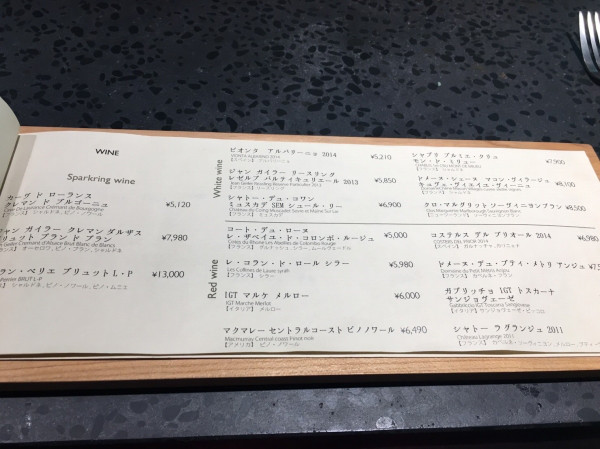 WINE
Sparkring wine
カーヴ ド ローランス
クレマン ド ブルゴーニュ
¥5,120
【フランス】 シャルドネ、ピノ・ノワール
ジャン ガイラー クレマン ダルザス
ブリュット ブラン ド ブラン
¥7,980
ローラン・ペリエ ブリュット L・P
¥13,000
White wine
ピオンタ アルバリーニョ 2014
¥5,210
ジャン ガイラー リースリング
レゼルブ パルティキュリエール 2013
¥5,850
シャトー・デュ・コワン
ミュスカデ SEM シュール・リー
¥6,900
【フランス】 ミュスカデ
シャブリ プルミエ・クリュ
モン・ド・ミリュー
¥7,900
ドメーヌ・シューヌ マコン・ヴィラージュ
キュヴェ・ヴィエイユ・ヴィーニュ
¥8,100
クロ・マルグリット ソーヴィニヨンブラン
¥8,500
Red wine
コート・デュ・ローヌ
レ・ザベイユ・ド・コロンボ・ルージュ
¥5,000
レ・コラン・ド・ロール シラー
¥5,980
Les Collines de Laure syrah
【フランス】 シラー
IGT マルケ メルロー
¥6,000
IGT Marche Merlot
【イタリア】 メルロー
マクマレー セントラルコースト ピノノワール
¥6,490
Macmurray Central coast Pinot noir
【アメリカ】 ピノ・ノワール
コステルス デル プリオール 2014
¥6,980
COSTERS DEL PRIOR 2014
【スペイン】 ガルナッチャ、カリニャナ
ドメーヌ・デュ・プティ・メトリ アンジュ
Domaine du Petit Metris Anjou
【フランス】 カベルネ・フラン
ガブリッチョ IGT トスカーナ
サンジョヴェーゼ
【イタリア】 サンジョヴェーゼ・ピッコロ
シャトー ラグランジュ 2011
Château Lagrange 2011